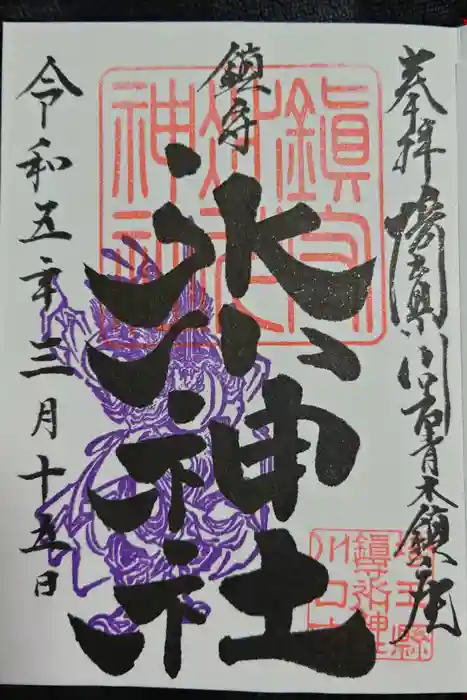 奉拝 埼玉県川口市青木鎮座
鎮守
氷川神社
令和五年三月十五日
鎮守
氷川
神社
埼玉縣
鎮守氷川神社
川口市